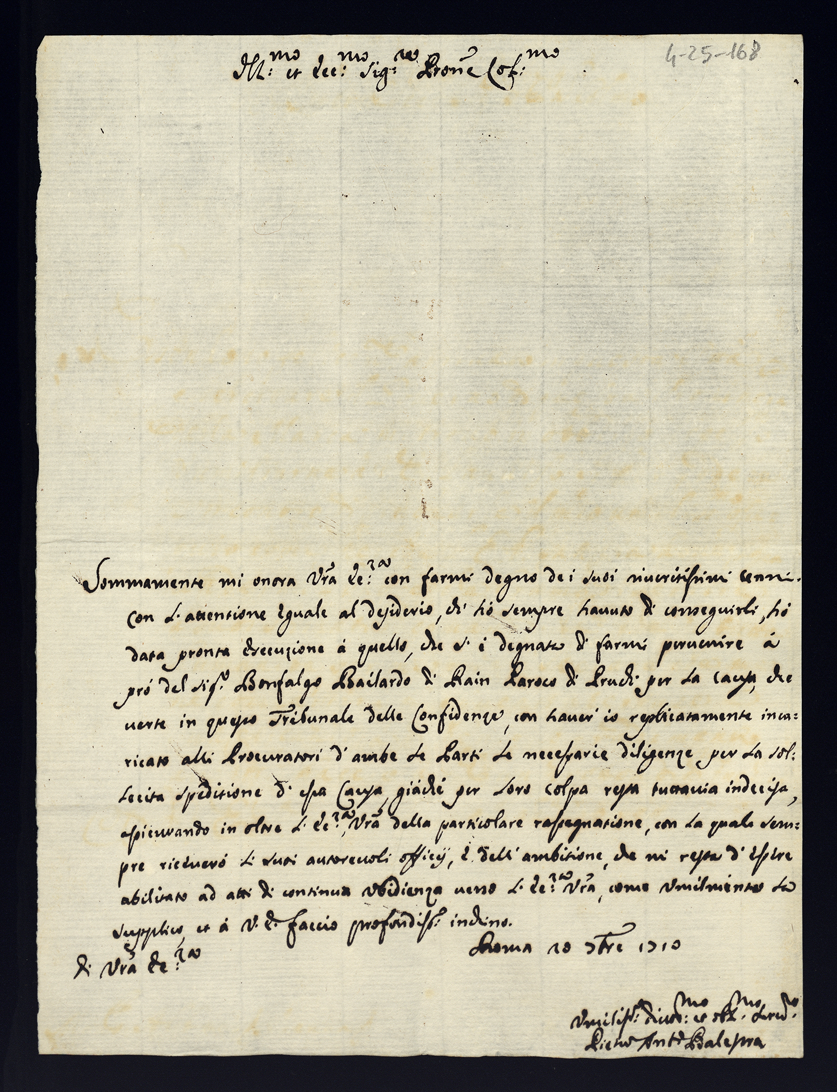 4-25-168
Ill.mo et Ecc.mo Sig.re Prone Col.mo
Sommamente mi onora Vra Ecc.za con farmi degno dei suoi riveritissimi cenni.
Con l'attentione eguale al desiderio, ch'hò sempre havuto di conseguirli, hò
data pronta esecuzione à quello, che si è degnata di farmi pervenire à
prò del Sig.r Bailardo di Rain Paroco di per la causa, che
verte in questo Tribunale delle Confidenze, con haver io replicatamente inca=
ricato alli Procuratori d'ambe le Parti le necessarie diligenze per la sol=
lecita speditione d'essa Causa, giàche per loro colpa resta tuttavia indecisa,
assicurando in oltre l'Ecc.za Vra della particolare rassegnatione, con la quale sem=
pre riceverò li suoi autorevoli officij, e dell'ambitione, che mi resta d'essere
abilitato ad atti di continua ubidienza verso l'Ecc.za Vra, come umilmente la
supplico, et à V.E. faccio profondiss.o inchino.
Roma 20 1710
di Vra Ecc.za
Umiliss.o divot.mo et obl.mo Serv.re
Pietro Ant.o